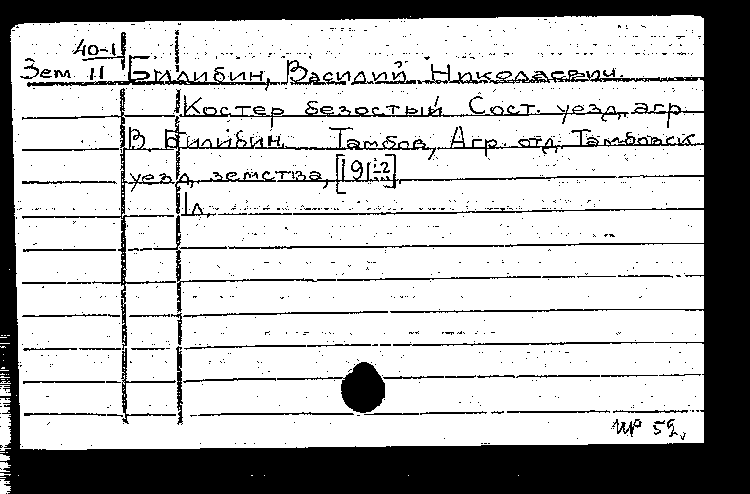 40-1
Зем. 11 Билибин, Василий Николаевич.
Костер безостый Сост. уезд. агр.
В. Билибин. Тамбов, Агр. отд. Тамбовск.
уезд. земства, [191-?].
1 л.
ир 59.